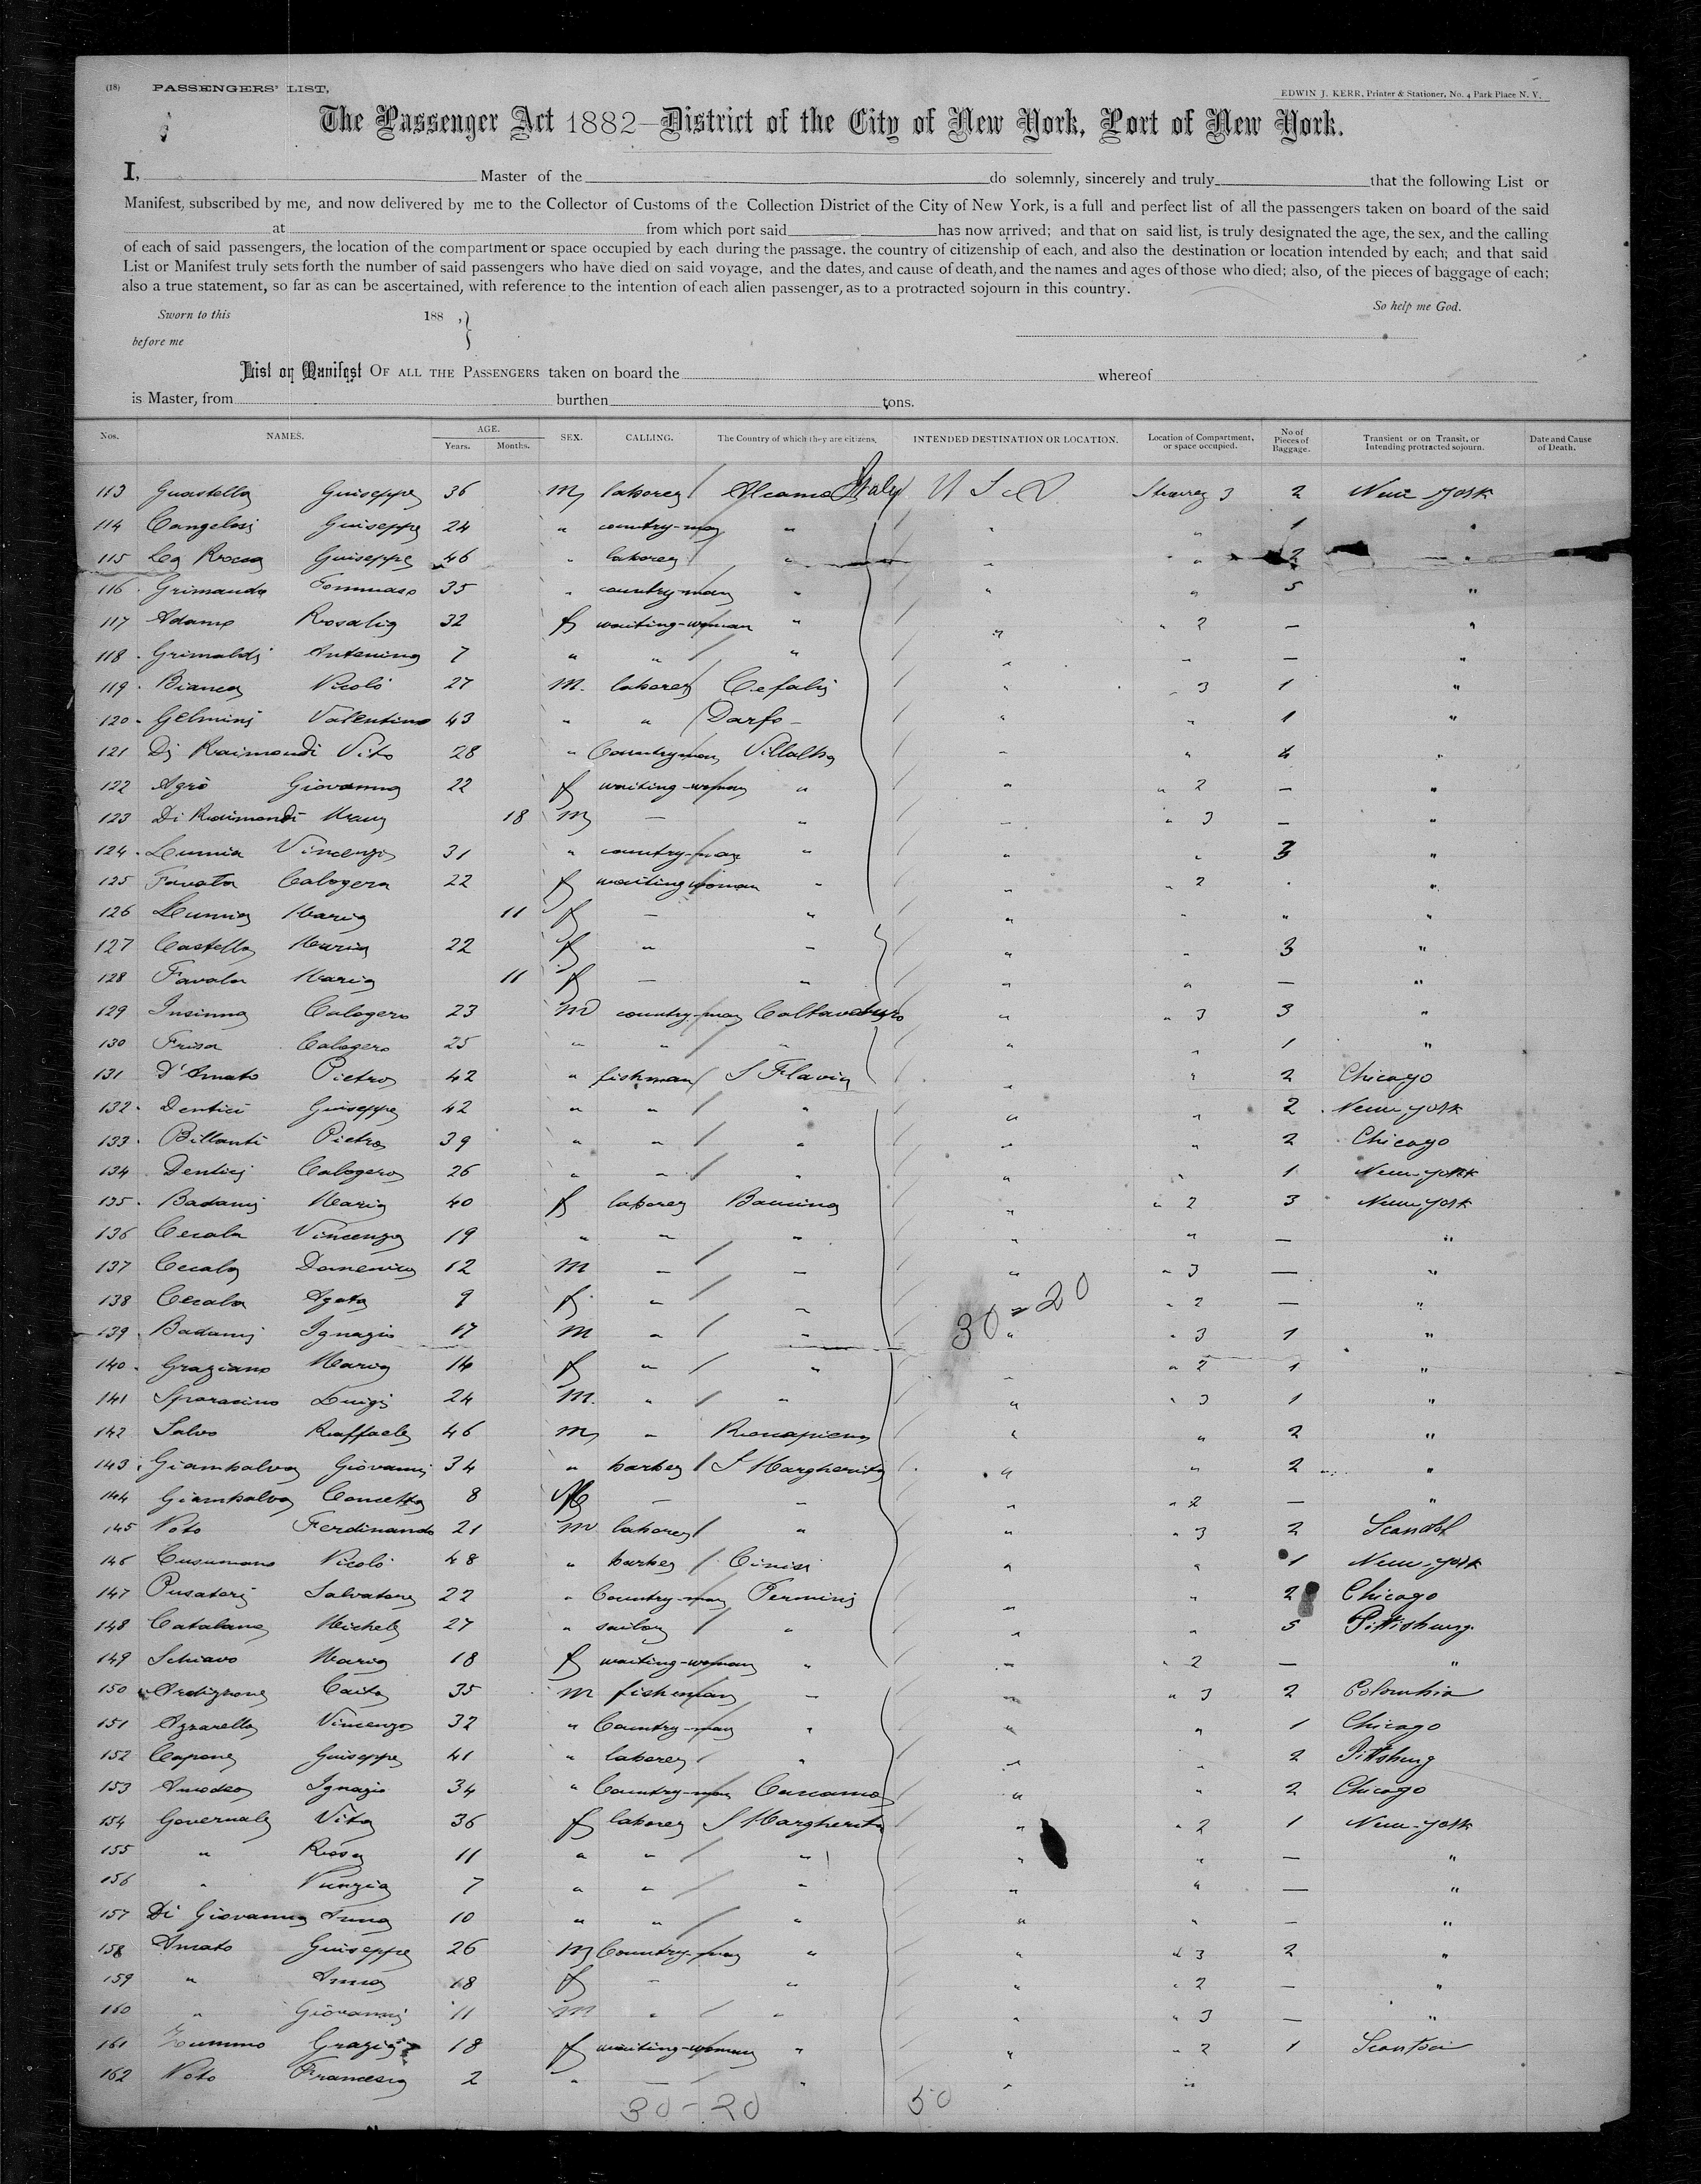 (18) PASSENGERS' LIST,
EDWIN J. KERR, Printer & Stationer, No. 4 Park Place N. Y.
The Passenger Act 1882—District of the City of New York, Port of New York.
I, Master of the do solemnly, sincerely and truly that the following List or
Manifest, subscribed by me, and now delivered by me to the Collector of Customs of the Collection District of the City of New York, is a full and perfect list of all the passengers taken on board of the said
at from which port said has now arrived; and that on said list, is truly designated the age, the sex, and the calling
of each of said passengers, the location of the compartment or space occupied by each during the passage. the country of citizenship of each, and also the destination or location intended by each; and that said
List or Manifest truly sets forth the number of said passengers who have died on said voyage, and the dates, and cause of death, and the names and ages of those who died; also, of the pieces of baggage of each;
also a true statement, so far as can be ascertained, with reference to the intention of each alien passenger, as to a protracted sojourn in this country.
So help me God.
Sworn to this 188 , }
before me
List or Manifest OF ALL THE PASSENGERS taken on board the whereof
is Master, from burthen tons.
Nos. NAMES. AGE. Years. Months. SEX. CALLING. The Country of which they are citizens. INTENDED DESTINATION OR LOCATION. Location of Compartment, or space occupied. No of Pieces of Baggage. Transient or on Transit, or Intending protracted sojourn. Date and Cause of Death.
113 Guastella Guiseppe 36 m laborer Alcamo Italy U S A 3 2 New York
114 Cangelosi Guiseppe 24 " country-man " " " 1 "
115 La Rocca Guiseppe 46 " laborer " " " 2 "
116 Grimaudo Tommaso 35 " country-man " " " 5 "
117 Adamo Rosalia 32 f waiting-woman " " " 2 — "
118 Grimaldi Antonina 7 " " " " " — "
119 Bianca Nicolò 27 M. laborer Cefalù " " 3 1 "
120 Gelmini Valentino 43 " " Darfo " " 1 "
121 Di Raimondi Vito 28 " Countryman Villalba " " 4 "
122 Agrò Giovanna 22 f waiting-woman " " " 2 — "
123 Di Raimondi 18 m — " " " 3 — "
124 Lumia Vincenzo 31 " country-man " " " 3 "
125 Favata Calogera 22 f waiting woman " " " 2 "
126 Lumia Maria 11 f — " " " " "
127 Castella Maria 22 f " " " " 3 "
128 Favata Maria 11 f — " " " — "
129 Insinna Calogero 23 m country-man Caltavuturo " " 3 3 "
130 Frisa Calogero 25 " " " " " 1 "
131 D'Amato Pietro 42 " fishman S Flavia " " 2 Chicago
132 Dentici Guiseppe 42 " " " " " 2 New-york
133 Billanti Pietro 39 " " " " " 2 Chicago
134 Dentici Calogero 26 " " " " " 1 New-york
135 Badami Maria 40 f laborer Baucina " " 2 3 New-york
136 Cecala Vincenza 19 " " " " " — "
137 Cecala Domenico 12 M " " " " 3 — "
138 Cecala Agata 9 f " " " 2 — "
30 - 20
139 Badami Ignazio 17 M " " " " 3 1 "
140 Graziano Maria 14 f " " " " 2 1 "
141 Sparacino Luigi 24 M. " " " " 3 1 "
142 Salvo Raffaele 46 m " " " 2 "
143 Giambalvo Giovanni 34 " barber S Margherita " " 2 "
144 Giambalvo Concetta 8 f — " " " 2 — "
145 Noto Ferdinando 21 m laborer " " " 3 2
146 Cusumano Nicolò 48 " barber Cinisi " " 1 New-york
147 Pusateri Salvatore 22 " Country-man " " 2 Chicago
148 Catalano Michele 27 " sailor " " " 5 Pittsburg
149 Schiavo Maria 18 f waiting-woman " " " 2 — "
150 35 m fisherman " " " 3 2 Colombia
151 Azzarella Vincenzo 32 " Country-man " " " 1 Chicago
152 Capone Guiseppe 41 " laborer " " " 2 Pittsburg
153 Amodeo Ignazio 34 " Country-man " " 2 Chicago
154 Governale Vita 36 f laborer S Margherita " " 2 1 New-york
155 " Rosa 11 " " " " " — "
156 " Nunzia 7 " " " " " — "
157 Di Giovanna Anna 10 " " " " " — "
158 Amato Guiseppe 26 m Country-man " " " 3 2 "
159 " Anna 18 f — " " " 2 — "
160 " Giovanni 11 m " " " " 3 — "
161 Zummo Grazia 18 f waiting-woman " " " 2 1
162 Noto Francesca 2 " — " " "
30 - 20 50